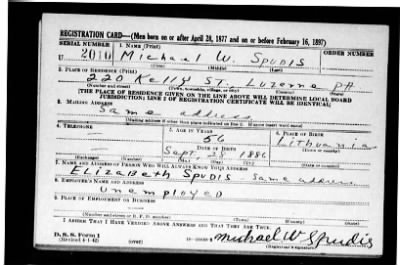 REGISTRATION CARD—(Men born on or after April 28, 1877 and on or before February 16, 1897)
SERIAL NUMBER 1. NAME (Print) ORDER NUMBER
U 2010 Michael W. Spudis
(First) (Middle) (Last)
2. PLACE OF RESIDENCE (Print)
220 Kelly St. Luzerne PA
(Number and street) (Town, township, village, or city) (County) (State)
[THE PLACE OF RESIDENCE GIVEN ON THE LINE ABOVE WILL DETERMINE LOCAL BOARD
JURISDICTION; LINE 2 OF REGISTRATION CERTIFICATE WILL BE IDENTICAL]
3. MAILING ADDRESS
Same address
[Mailing address if other than place indicated on line 2. If same insert word same]
4. TELEPHONE 5. AGE IN YEARS 6. PLACE OF BIRTH
56 Lithuania
DATE OF BIRTH
Sept. 28 1886
(Exchange) (Number) (Mo.) (Day) (Yr.) (State or country)
7. NAME AND ADDRESS OF PERSON WHO WILL ALWAYS KNOW YOUR ADDRESS
Elizabeth Spudis same address
8. EMPLOYER'S NAME AND ADDRESS
Unemployed
9. PLACE OF EMPLOYMENT OR BUSINESS
(Number and street or R. F. D. number) (Town) (County) (State)
I AFFIRM THAT I HAVE VERIFIED ABOVE ANSWERS AND THAT THEY ARE TRUE.
D. S. S. Form 1
(Revised 4-1-42) Michael W Spudis
(Registrant's signature)